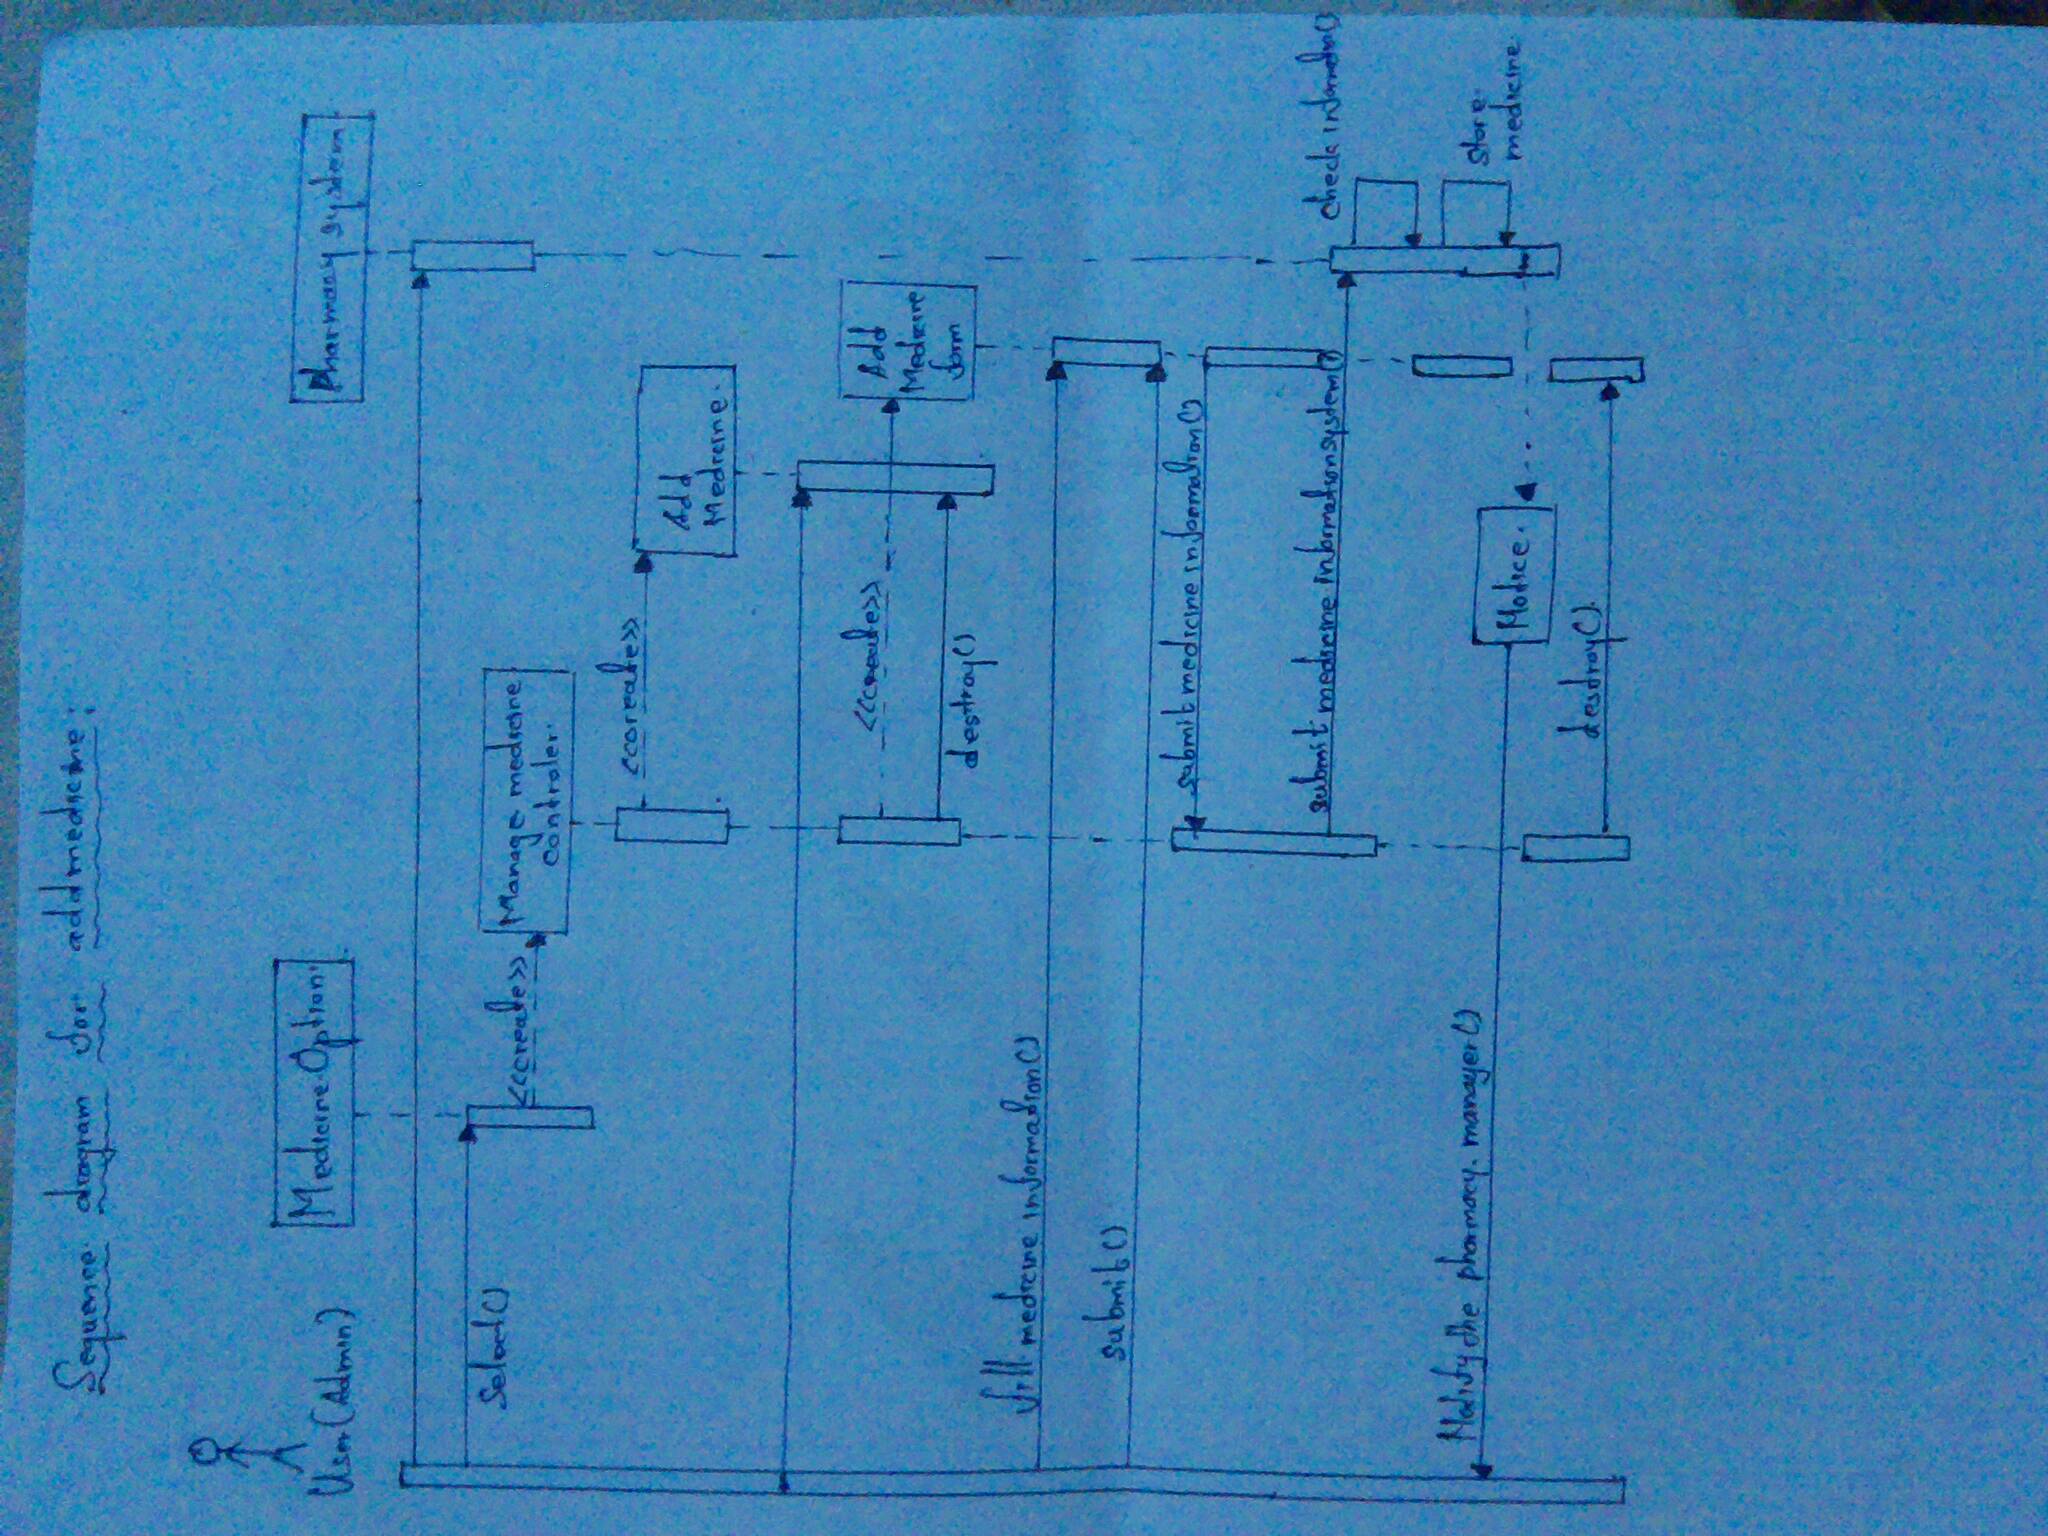 Sequence diagram for addmedicine:
User(Admin)
Medicine Option.
Pharmacy system.
Select()
<<create>>
Manage medicine
controler.
<<coreate>>
Add
Medicine.
<<create>>
Add
Medicine
form
destroy()
fill medicine information()
submit()
submit medicine information()
submit medicine informationsystem()
check information()
Notify the pharmacy. manager()
Notice.
store
medicine.
destroy().